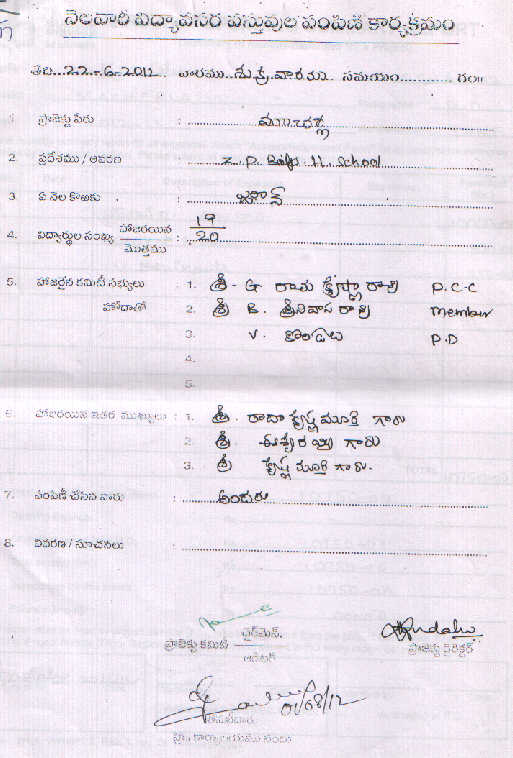 నెలవారీ విద్యావసర వస్తువుల పంపిణీ కార్యక్రమం
తేది..22-6-2012 వారము..శుక్రవారము సమయం............ గం॥
1. ప్రాజెక్టు పేరు : ముంచర్ల
2. ప్రదేశము / ఆవరణ : Z. P. Boys H. School
3 ఏ నెల కొఱకు : జూన్
4. విద్యార్థుల సంఖ్య హాజరయిన / మొత్తము : 19 / 20
5. హాజరైన కమిటీ సభ్యులు : 1. శ్రీ. G రామ కృష్ణా రావు P.C.C
హోదాతో 2. శ్రీ B. శ్రీనివాస రావు member
3. V. కొండలు P.D
4.
5.
6. హాజరయిన ఇతర ముఖ్యులు : 1. శ్రీ. రాధాకృష్ణమూర్తి గారు
2. శ్రీ. ఈశ్వరరావు గారు
3. శ్రీ కృష్ణమూర్తి గారు.
7. పంపిణీ చేసిన వారు : అందరు
8. వివరణ / సూచనలు :
చైర్మన్.
ప్రాజెక్టు కమిటీ
ఆడిటర్
ప్రాజెక్టు డైరెక్టర్
01/08/12
కార్యాలయము నందు